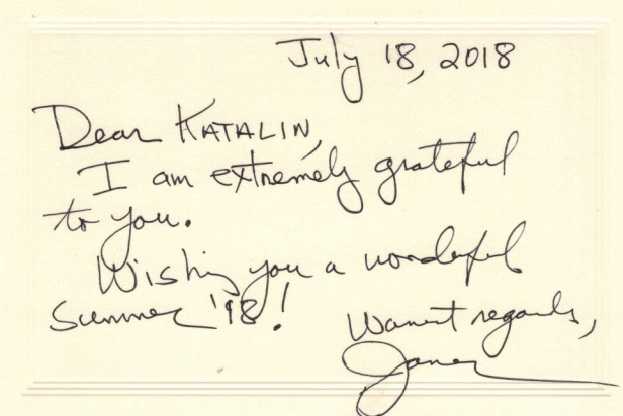 July 18, 2018
Dear KATALIN,
I am extremely grateful
to you.
Wishing you a wonderful
Summer '18!
Warmest regards,